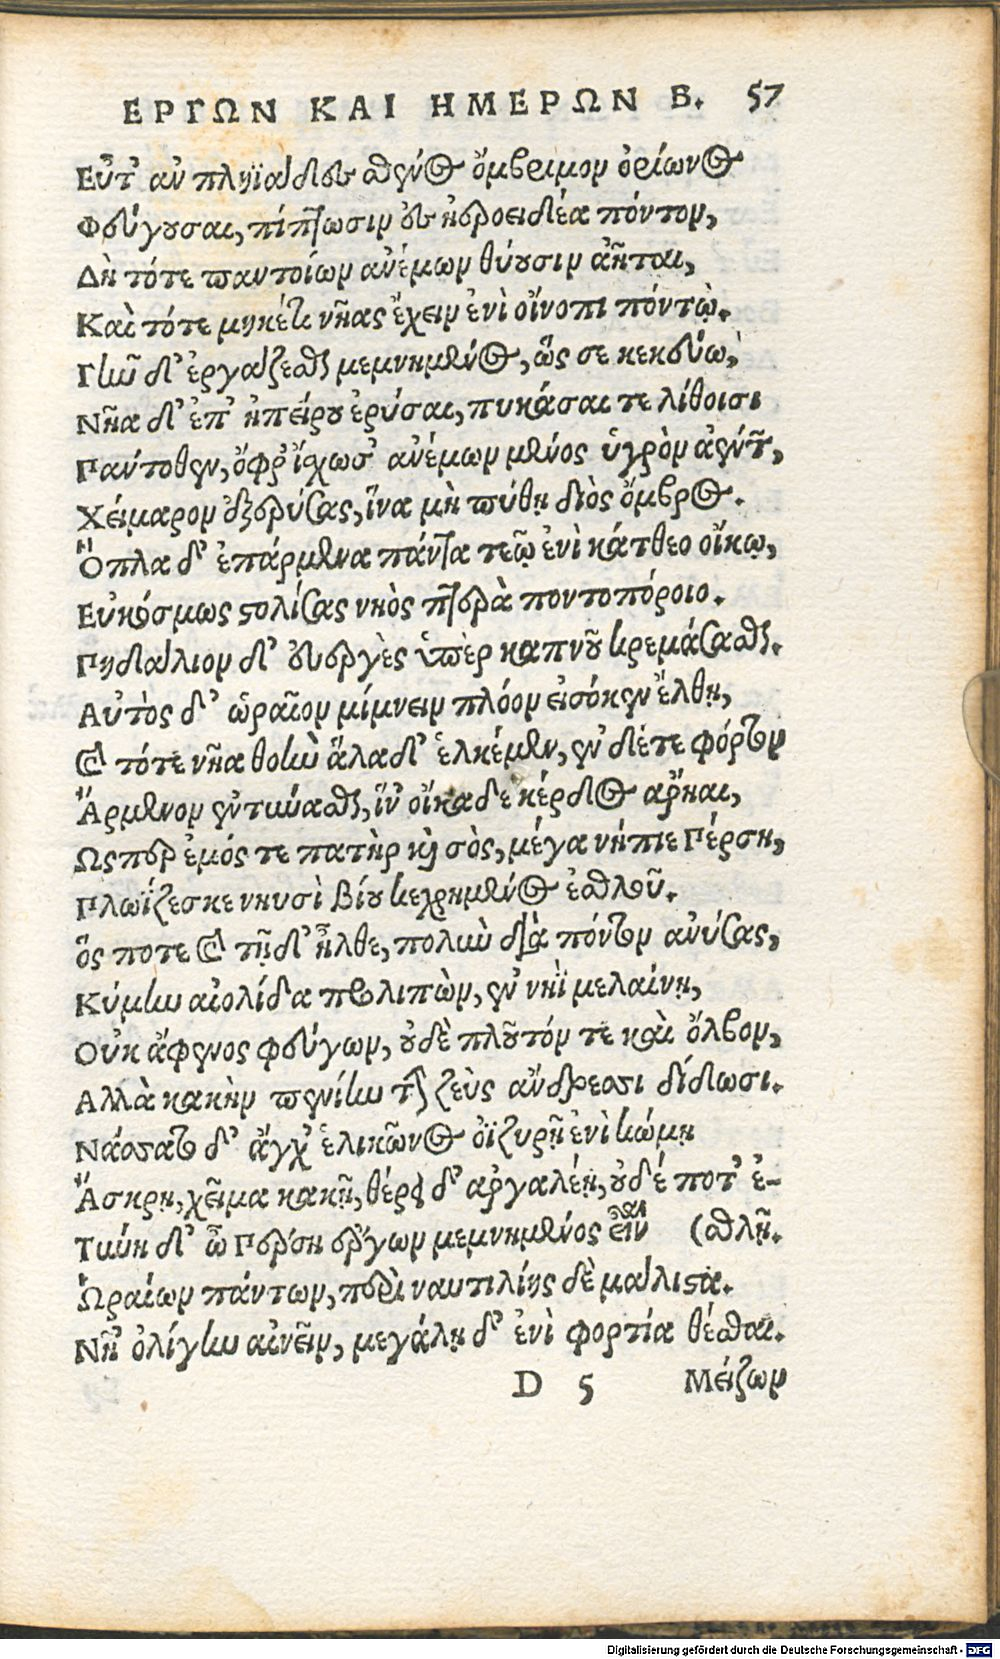 ΕΡΓΩΝ ΚΑΙ ΗΜΕΡΩΝ Β. 57
Εὖτ' ἂν πληϊάδες σθένος ὄμβριμον ὀρίωνος
Φεύγουσαι, πίπτωσιν ἐς ἠεροειδέα πόντον,
Δὴ τότε παντοίων ἀνέμων θύουσιν ἀῆται,
Καὶ τότε μηκέτι νῆας ἔχειν ἐνὶ οἴνοπι πόντῳ.
Γῆν δ' ἐργάζεσθαι μεμνημένος, ὥς σε κελεύω,
Νῆα δ' ἐπ' ἠπείρου ἐρύσαι, πυκάσαι τε λίθοισι
Πάντοθεν, ὄφρ' ἴχωσ' ἀνέμων μένος ὑγρὸν ἀέντων,
Χείμαρον ἐξερύσας, ἵνα μὴ πύθῃ διὸς ὄμβρος.
Ὅπλα δ' ἐπάρμενα πάντα τεῷ ἐνὶ κάτθεο οἴκῳ,
Εὐκόσμως στολίσας νηὸς πτερὰ ποντοπόροιο.
Πηδάλιον δ' εὐεργὲς ὑπὲρ καπνοῦ κρεμάσασθαι.
Αὐτὸς δ' ὡραῖον μίμνειν πλόον εἰσόκεν ἔλθῃ,
Καὶ τότε νῆα θοὴν ἅλαδ' ἑλκέμεν, ἐν δέ τε φόρτον
Ἄρμενον ἐντύνασθαι, ἵν' οἴκαδε κέρδος ἄρηαι,
Ὥσπερ ἐμός τε πατὴρ καὶ σὸς, μέγα νήπιε Πέρση,
Πλωΐζεσκε νηυσὶ βίου κεχρημένος ἐσθλοῦ.
ὅς ποτε καὶ τῇδ' ἦλθε, πολὺν διὰ πόντον ἀνύσας,
Κύμην αἰολίδα προλιπὼν, ἐν νηῒ μελαίνῃ,
Οὐκ ἄφενος φεύγων, οὐδὲ πλοῦτόν τε καὶ ὄλβον,
Αλλὰ κακὴν πενίην τὴν ζεὺς ἄνδρεσσι δίδωσι.
Νάσσατο δ' ἄγχ' ἑλικῶνος ὀϊζυρῇ ἐνὶ κώμῃ
Ἄσκρῃ, χεῖμα κακῇ, θέρει δ' ἀργαλέῃ, οὐδέ ποτ' ἐ-
Τύνη δ' ὦ Πέρση ἔργων μεμνημένος εἶναι (σθλῇ.
Ὡραίων πάντων, περὶ ναυτιλίης δὲ μάλιστα.
Νῆ' ὀλίγην αἰνεῖν, μεγάλῃ δ' ἐνὶ φορτία θέσθαι.
D 5 Μείζων
Digitalisierung gefördert durch die Deutsche Forschungsgemeinschaft - DFG